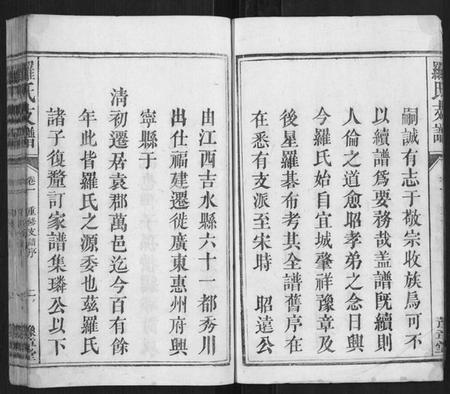 嗣誠有志于敬宗收族烏可不
以續譜爲要務哉盖譜旣續則
人倫之道愈昭孝弟之念日興
今羅氏始自宜城肇祥豫章及
後星羅碁布考其全譜舊序在
在悉有支派至宋時　昭達公
由江西吉水縣六十一都秀川
出仕福建遷徙廣東惠州府興
寧縣于
清初遷居袁郡萬邑迄今百有餘
年此皆羅氏之源委也茲羅氏
諸子復釐訂家譜集璘公以下
羅氏支譜
卷
重修支譜序
二
豫章堂
羅氏支譜